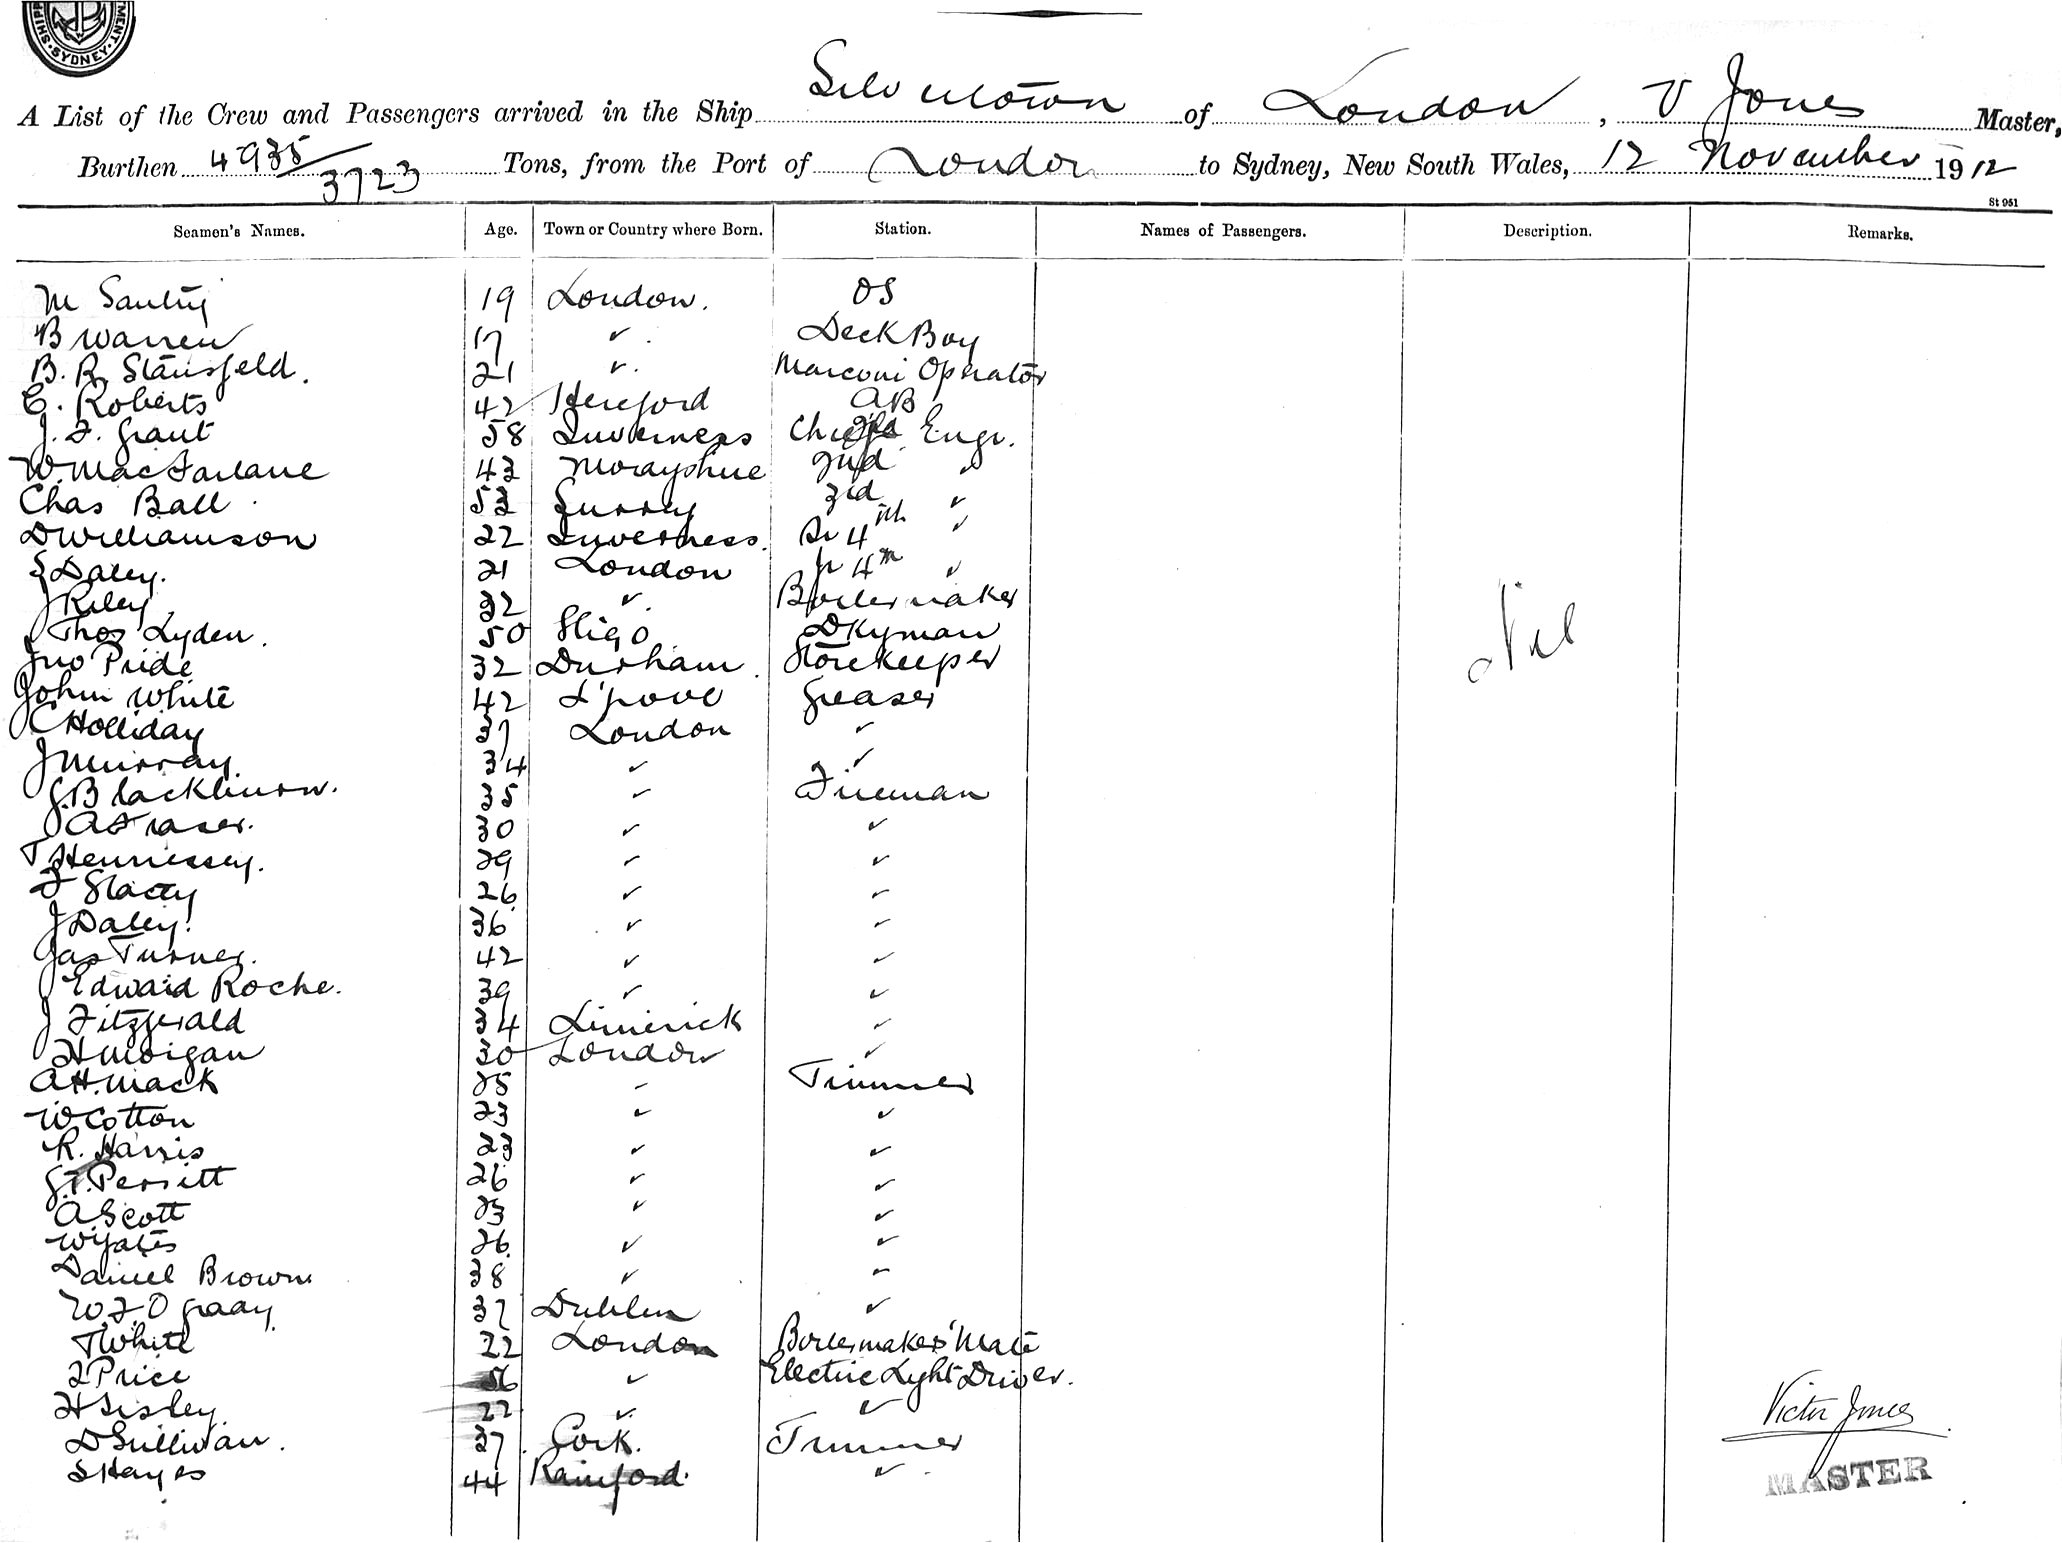 SHIPPI MENT · SYDNEY ·
A List of the Crew and Passengers arrived in the Ship Silvertown of London, V Jones Master,
Burthen 4935/3723 Tons, from the Port of London to Sydney, New South Wales, 12 November 1912
St 951
Seamen's Names. Age. Town or Country where Born. Station. Names of Passengers. Description. Remarks.
M 19 London. OS
B Warren 17 " Deck Boy
B. R. Stansfeld. 21 " Marconi Operator
E. Roberts 42 Hereford AB
J. F. Grant 58 Inverness Chief Engr.
W. MacFarlane 43 Morayshire 2nd "
Chas Ball 53 Surrey 3rd "
D Williamson 22 Inverness. Sr 4th "
S Daley. 21 London Jr 4th "
J Riley 32 " Boilermaker
Thos Lyden. 50 Sligo Dkyman
Jno Pride 32 Durham. Storekeeper
John White 42 L'pool Greaser
C Holliday 37 London "
J Murray. 34 " "
G. Blackburn. 35 " Fireman
A Fraser. 30 " "
T Hennessey. 29 " "
F Stacey 26 " "
J Daley. 36 " "
Jas Turner. 42 " "
Edward Roche. 39 " "
J Fitzgerald 34 Limerick "
H Morgan 30 London "
A. H. Mack 25 " Trimmer
W Cotton 23 " "
R. Harris 23 " "
G. T. Perritt 26 " "
A Scott "  "
W Yates 26 " "
Daniel Brown 38 " "
W. F. O Grady 37 Dublin "
T White 22 London Boilermakers' Mate
F Price 56 " Electric Light Driver.
H Sisley. 22 " "
D Sullivan. 37 Cork. Trimmer
S Hayes 44 Rainford. "
Nil
Victor Jones
MASTER